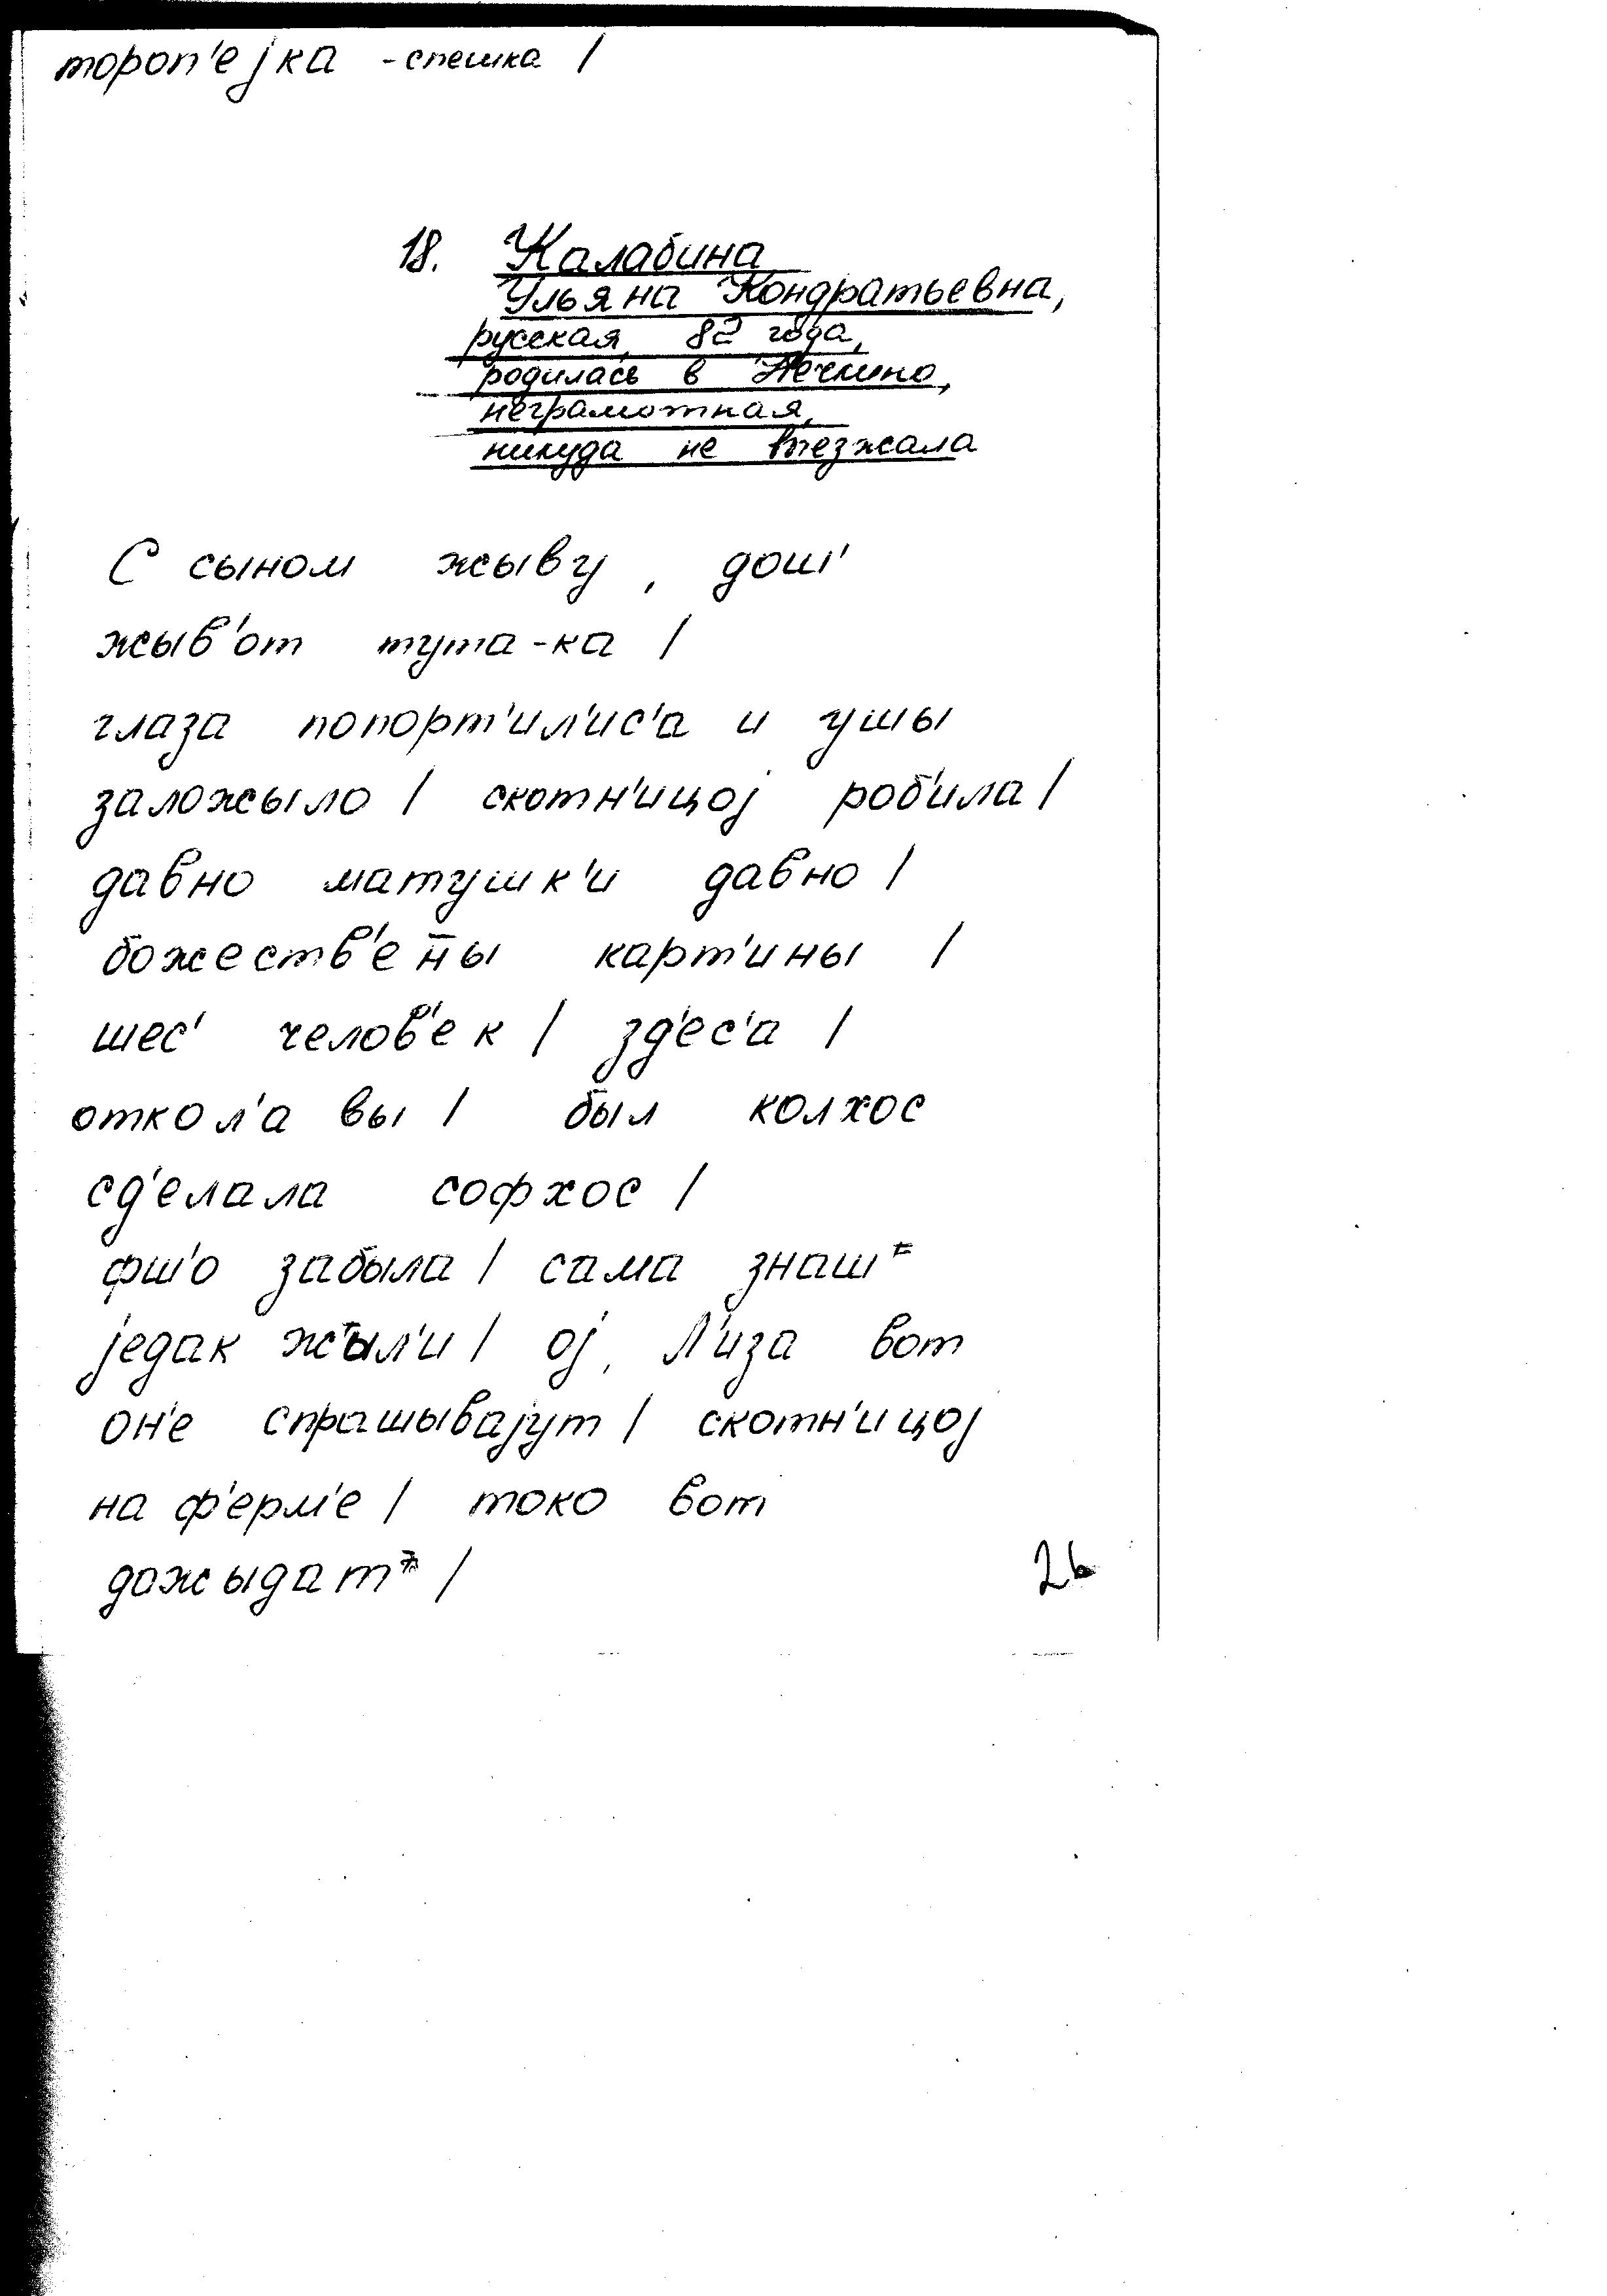 тороп'еjка -спешка /
18. Калабина
Ульяна Кондратьевна,
русская, 82 года,
родилась в Нечкино,
неграмотная,
никуда не выезжала
С сыном жыву, дош'
жыв'от тута-ка /
глаза попорт'ил'ис'а и ушы
заложыло / скотн'ицоj роб'ила /
давно матушк'и давно /
божеств'ен̄ы карт'ины /
шес' челов'ек / зд'ес'а /
откол'а вы / был колхос
сд'елала софхос /
фш'о забыла / сама знаш
jедак жыл'и / оj, Л'иза вот
он'е спрашываjут / скотн'ицоj
на ф'ерм'е / токо вот
дожыдат /
26